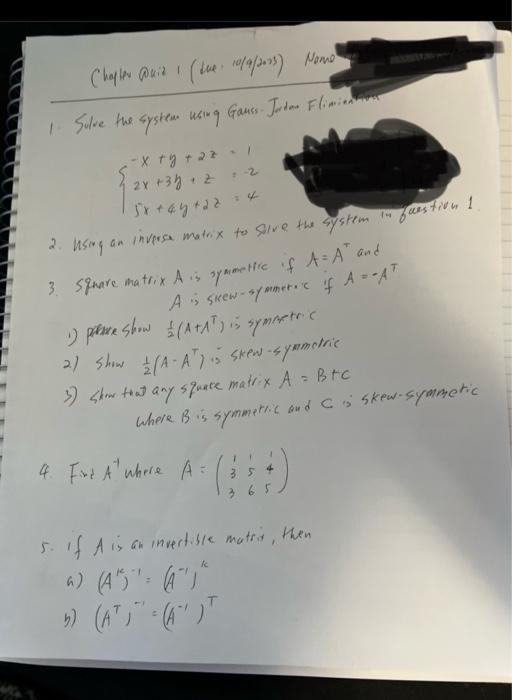 Chapter Quiz 1 (due: 10/9/2023) Name
1. Solve the system using Gauss-Jordan Elimination
-x + y + 2z = 1
2x + 3y + z = -2
5x + 4y + 2z = 4
2. Using an inverse matrix to solve the system in question 1.
3. Square matrix A is symmetric if A = Aᵀ and
A is skew-symmetric if A = -Aᵀ
1) please show ½(A+Aᵀ) is symmetric
2) show ½(A-Aᵀ) is skew-symmetric
3) show that any square matrix A = B+C
where B is symmetric and C is skew-symmetric
4. Find A⁻¹ where A = (1 1 1
3 5 4
3 6 5)
5. if A is an invertible matrix, then
a) (Aᵏ)⁻¹ = (A⁻¹)ᵏ
b) (Aᵀ)⁻¹ = (A⁻¹)ᵀ